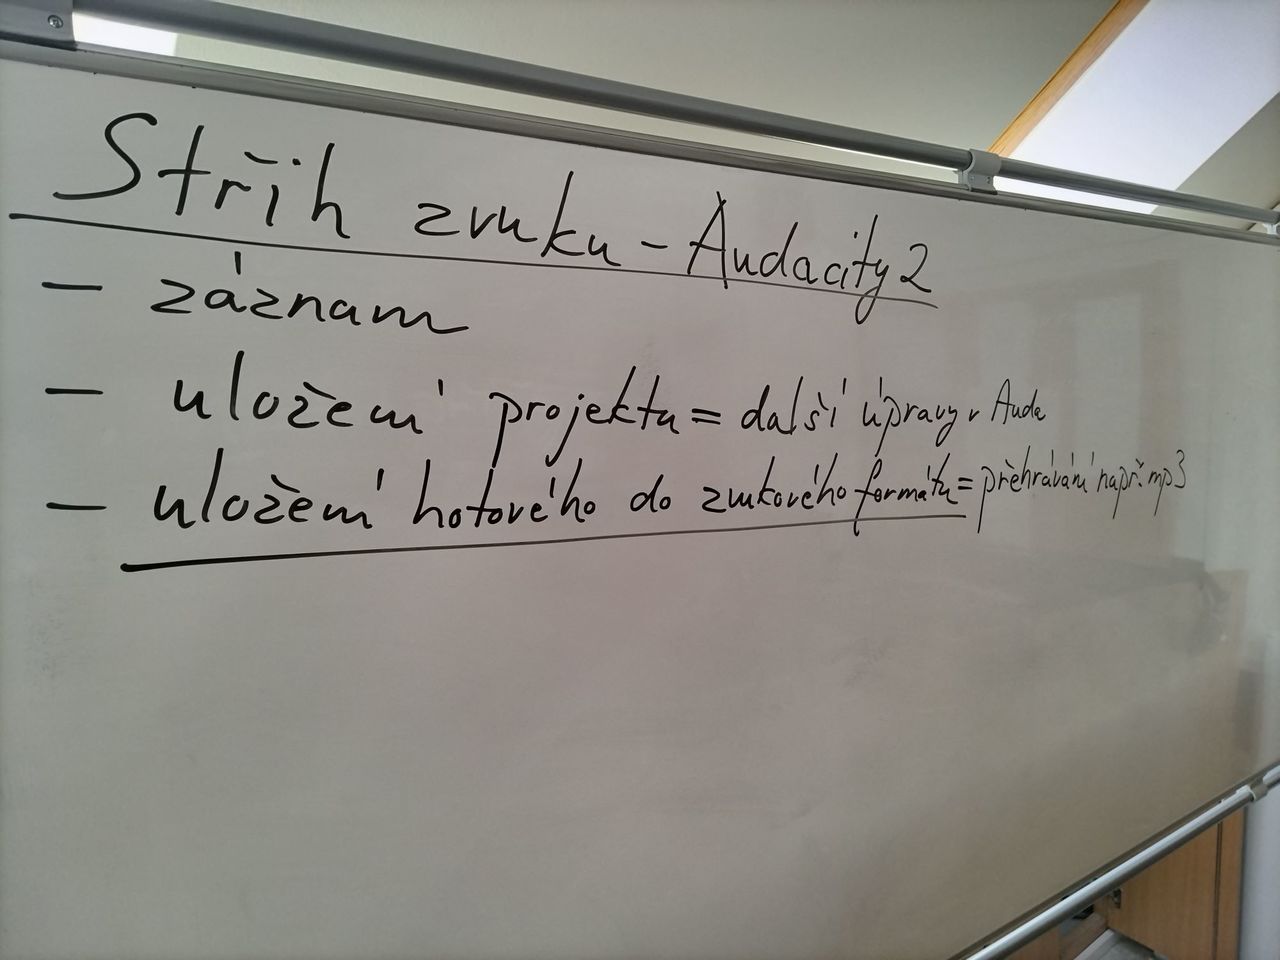 Střih zvuku - Audacity 2
- záznam
- uložení projektu = další úpravy v Auda
- uložení hotového do zvukového formátu = přehrávání např. mp3